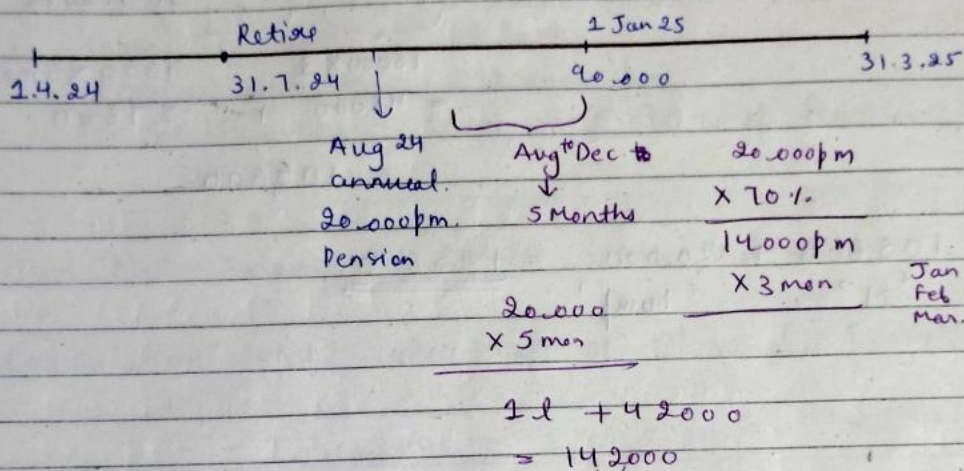 Retire
1 Jan 25
1.4.24
31.7.24
90.000
31.3.25
Aug 24
annual.
20.000pm.
Pension
Aug to Dec
5 Months
20.000
X 5 mon
20.000pm
X 70 %
14000pm
X 3 mon
Jan
Feb
Mar.
1 l + 42000
= 142000